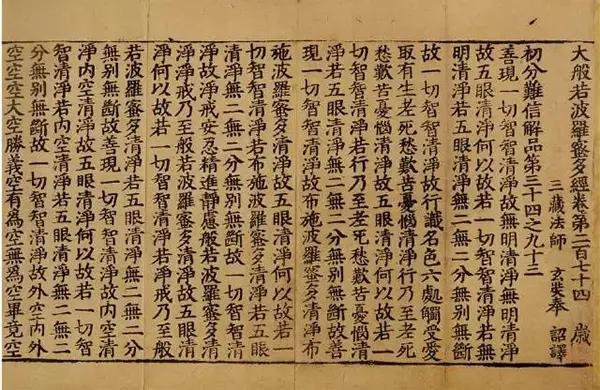 大般若波羅蜜多經卷第二百七十四 歲
三藏法師 玄奘奉 詔譯
初分難信解品第三十四之九十三
善現一切智智清淨故無明清淨無明清淨
故五眼清淨何以故若一切智智清淨若無
明清淨若五眼清淨無二無二分無別無斷
故一切智智清淨故行識名色六處觸受愛
取有生老死愁歎苦憂惱清淨行乃至老死
愁歎苦憂惱清淨故五眼清淨何以故若一
切智智清淨若行乃至老死愁歎苦憂惱清
淨若五眼清淨無二無二分無別無斷故善
現一切智智清淨故布施波羅蜜多清淨布
施波羅蜜多清淨故五眼清淨何以故若一
切智智清淨若布施波羅蜜多清淨若五眼
清淨無二無二分無別無斷故一切智智清
淨故淨戒安忍精進靜慮般若波羅蜜多清
淨淨戒乃至般若波羅蜜多清淨故五眼清
淨何以故若一切智智清淨若淨戒乃至般
若波羅蜜多清淨若五眼清淨無二無二分
無別無斷故善現一切智智清淨故內空清
淨內空清淨故五眼清淨何以故若一切智
智清淨若內空清淨若五眼清淨無二無二
分無別無斷故一切智智清淨故外空內外
空空空大空勝義空有為空無為空畢竟空